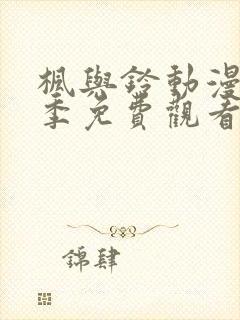 楓與鈴動漫
季免費觀看
錦肆